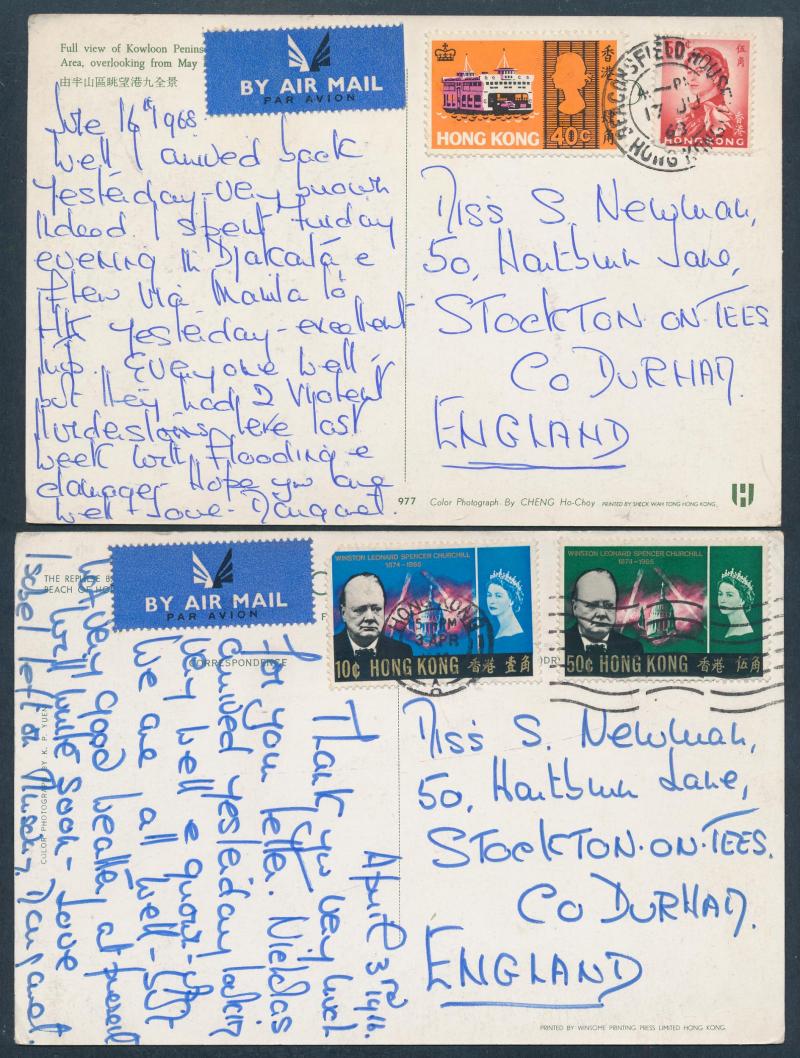 Full view of Kowloon Penins
Area, overlooking from May
由半山區眺望港九全景
BY AIR MAIL
PAR AVION
HONG KONG 40c
香港
角
50c
伍角
香港
HONG KONG
BEACONSFIELD HOUSE
4 - PM
17 JU
68
HONG KONG
June 16th 1968
Well I arrived back
yesterday - very brown
indeed. I spent Friday
evening in Djakarta &
flew via Manila to
HK yesterday - excellent
trip. Everyone well -
but they had 2 violent
thunderstorms here last
week with flooding &
damage. Hope you are
well - Love - Margaret.
Miss S. Newman,
50, Hartburn Lane,
STOCKTON-ON-TEES
Co DURHAM.
ENGLAND
977 Color Photograph By CHENG Ho-Choy PRINTED BY SHECK WAH TONG HONG KONG.
THE REPULSE B
BEACH OF HO
BY AIR MAIL
PAR AVION
CORRESPONDENCE
COLOR PHOTOGRAPH BY K. P. YUEN
WINSTON LEONARD SPENCER CHURCHILL
1874-1965
10c HONG KONG 香港 壹角
HONG KONG
PM
3 APR
WINSTON LEONARD SPENCER CHURCHILL
1874-1965
50c HONG KONG 香港 伍角
April 3rd
1966.
Thank you very much
for your letter. Nicholas
arrived yesterday looking
very well & grown-up.
We are all well - just
very good weather at present
Will write soon - Love
Isobel left on Thursday, Margaret.
Miss S. Newman,
50, Hartburn Lane,
STOCKTON-ON-TEES.
Co DURHAM.
ENGLAND
PRINTED BY WINSOME PRINTING PRESS LIMITED HONG KONG.